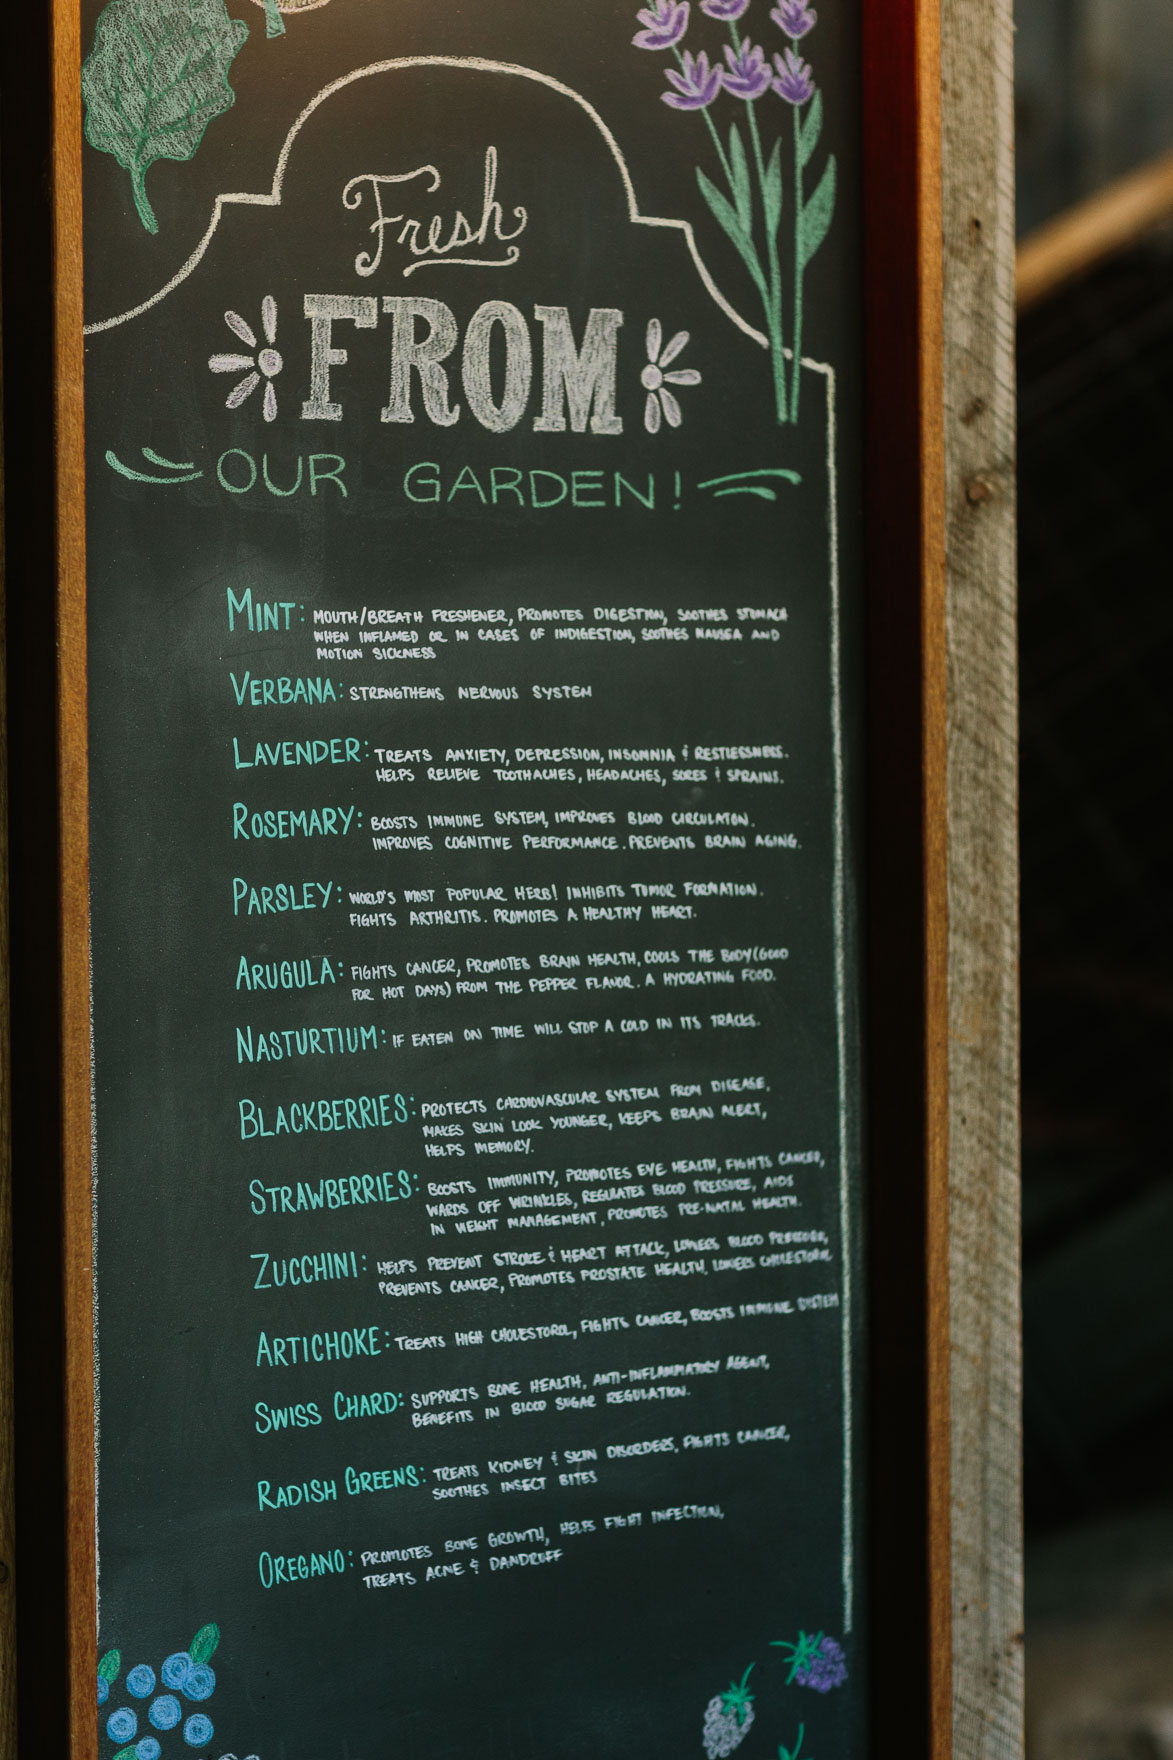 Fresh
FROM
OUR GARDEN!
MINT: MOUTH/BREATH FRESHENER, PROMOTES DIGESTION, SOOTHES STOMACH
WHEN INFLAMED OR IN CASES OF INDIGESTION, SOOTHES NAUSEA AND
MOTION SICKNESS
VERBANA: STRENGTHENS NERVOUS SYSTEM
LAVENDER: TREATS ANXIETY, DEPRESSION, INSOMNIA & RESTLESSNESS.
HELPS RELIEVE TOOTHACHES, HEADACHES, SORES & SPRAINS.
ROSEMARY: BOOSTS IMMUNE SYSTEM, IMPROVES BLOOD CIRCULATON.
IMPROVES COGNITIVE PERFORMANCE. PREVENTS BRAIN AGING.
PARSLEY: WORLD'S MOST POPULAR HERB! INHIBITS TUMOR FORMATION.
FIGHTS ARTHRITIS. PROMOTES A HEALTHY HEART.
ARUGULA: FIGHTS CANCER, PROMOTES BRAIN HEALTH, COOLS THE BODY (GOOD
FOR HOT DAYS) FROM THE PEPPER FLAVOR. A HYDRATING FOOD.
NASTURTIUM: IF EATEN ON TIME WILL STOP A COLD IN ITS TRACKS.
BLACKBERRIES: PROTECTS CARDIOVASCULAR SYSTEM FROM DISEASE,
MAKES SKIN LOOK YOUNGER, KEEPS BRAIN ALERT,
HELPS MEMORY.
STRAWBERRIES: BOOSTS IMMUNITY, PROMOTES EYE HEALTH, FIGHTS CANCER,
WARDS OFF WRINKLES, REGULATES BLOOD PRESSURE, AIDS
IN WEIGHT MANAGEMENT, PROMOTES PRE-NATAL HEALTH.
ZUCCHINI: HELPS PREVENT STROKE & HEART ATTACK, LOWERS BLOOD PRESSURE,
PREVENTS CANCER, PROMOTES PROSTATE HEALTH, LOWERS CHOLESTORAL
ARTICHOKE: TREATS HIGH CHOLESTOROL, FIGHTS CANCER, BOOSTS IMMUNE SYSTEM
SWISS CHARD: SUPPORTS BONE HEALTH, ANTI-INFLAMMATORY AGENT,
BENEFITS IN BLOOD SUGAR REGULATION.
RADISH GREENS: TREATS KIDNEY & SKIN DISORDERS, FIGHTS CANCER,
SOOTHES INSECT BITES
OREGANO: PROMOTES BONE GROWTH, HELPS FIGHT INFECTION,
TREATS ACNE & DANDRUFF